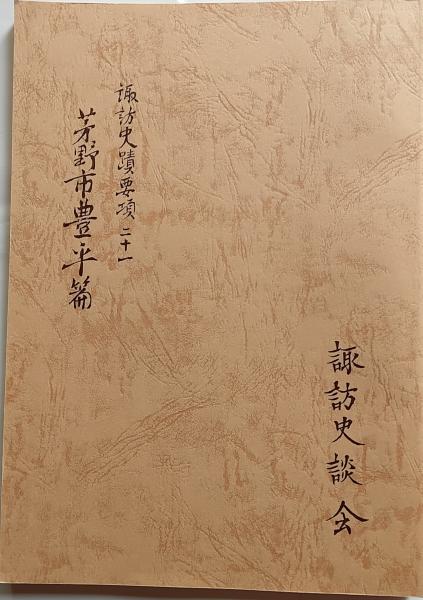 諏訪史蹟要項 二十一
茅野市豊平篇
諏訪史談会